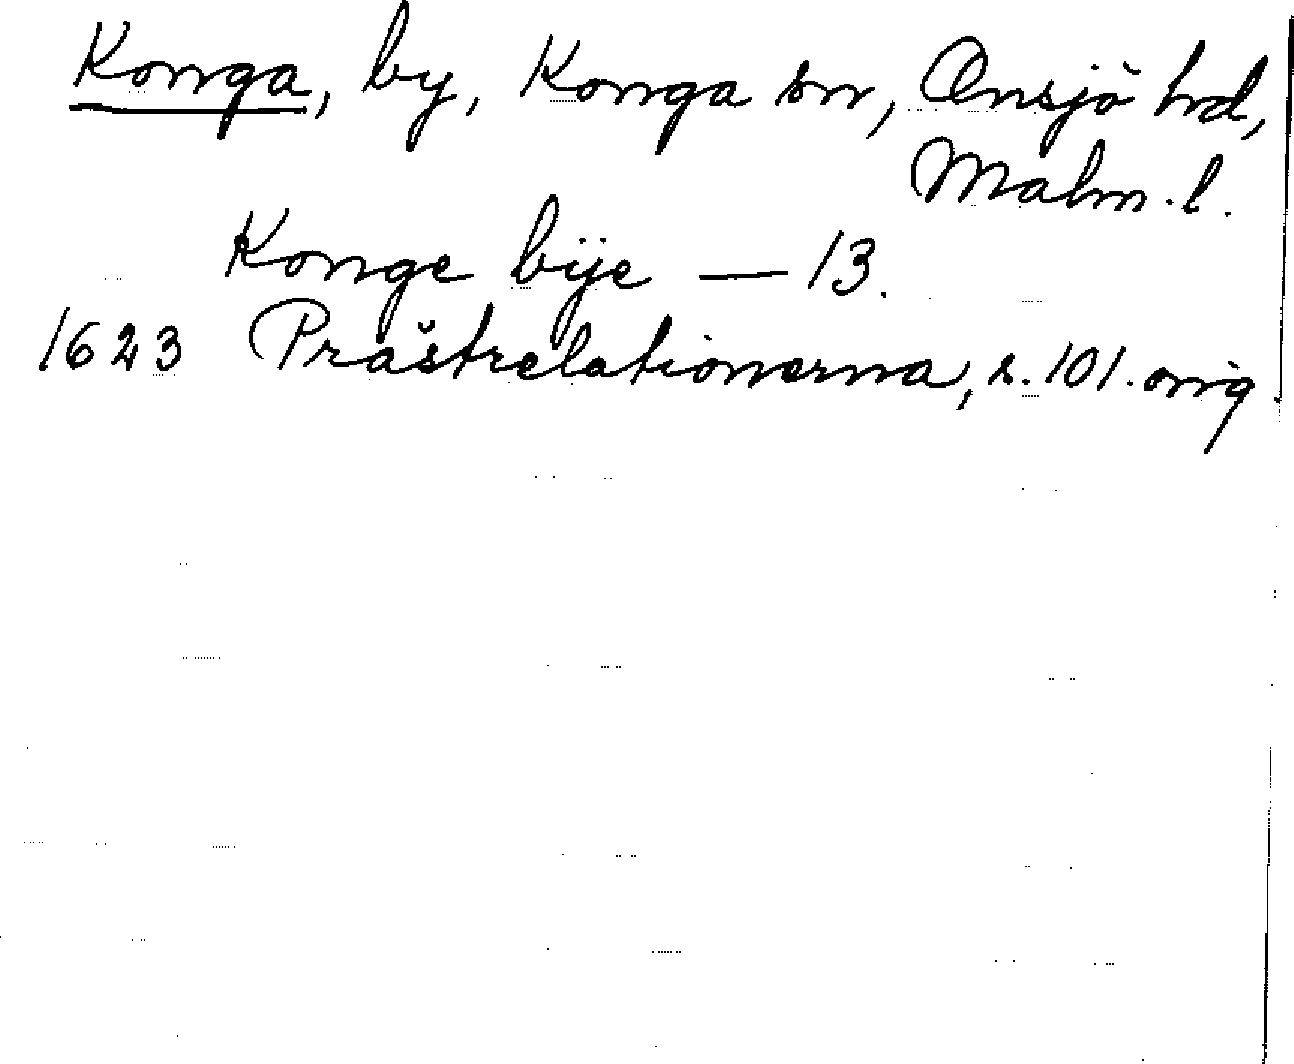 Konga, by, Konga sn, Onsjö hd,
Malm. l.
Konge bÿe — 13.
1623 Prästrelationerna, s. 101. orig.